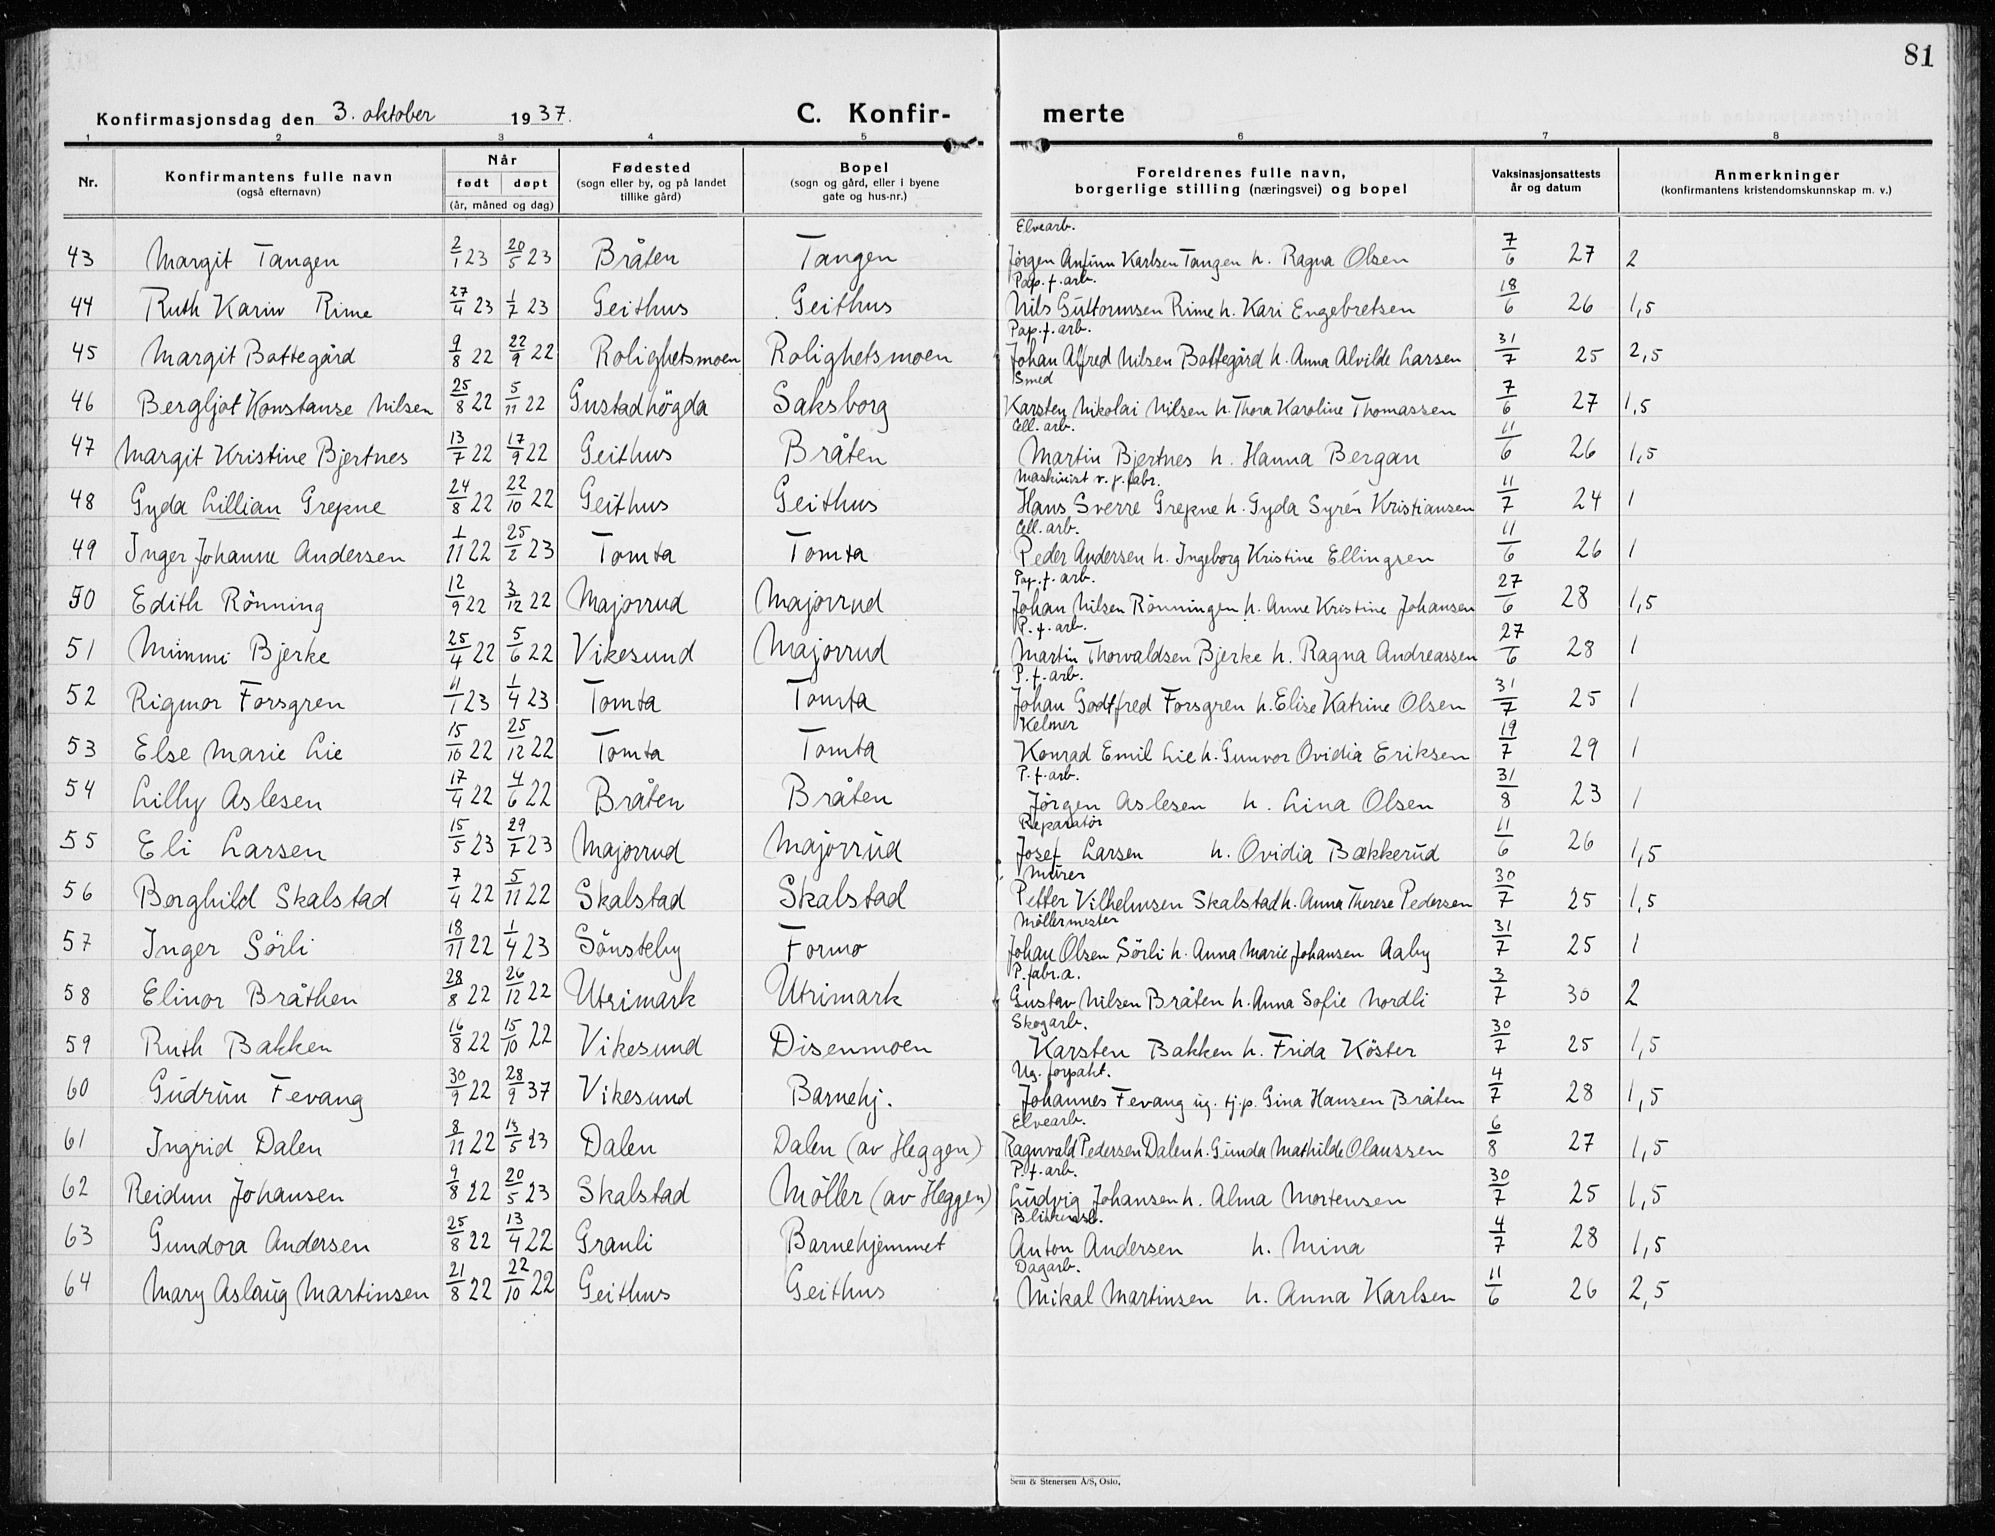 81
Konfirmasjonsdag den 3. oktober 1937. C. Konfir- merte
1 2 3 4 5 6 7 8
Nr. Konfirmantens fulle navn (også efternavn) Når født døpt (år, måned og dag) Fødested (sogn eller by, og på landet tillike gård) Bopel (sogn og gård, eller i byene gate og hus-nr.) Foreldrenes fulle navn, borgerlige stilling (næringsvei) og bopel Vaksinasjonsattests år og datum Anmerkninger (konfirmantens kristendomskunnskap m. v.)
Elvearb.
43 Margit Tangen 2/1 23 20/5 23 Bråten Tangen Jørgen Antinn Karlsen Tangen h. Ragna Olsen 7/6 27 2
Pap. f. arb.
44 Ruth Karin Rime 27/4 23 1/7 23 Geithus Geithus Nils Guttormsen Rime h. Kari Engebretsen 18/6 26 1,5
Pap. f. arb.
45 Margit Bottegård 9/8 22 22/9 22 Rolighetsmoen Rolighetsmoen Johan Alfred Nilsen Bottegård h. Anna Alvilde Larsen 31/7 25 2,5
Smed
46 Bergljot Konstanse Nilsen 25/8 22 5/11 22 Gustadhögda Saksborg Karsten Nikolai Nilsen h. Thora Karoline Thomassen 7/6 27 1,5
Cell. arb.
47 Margit Kristine Bjertnes 13/7 22 17/9 22 Geithus Bråten Martin Bjertnes h. Hanna Bergan 11/6 26 1,5
Maskinist v. p. fabr.
48 Gyda Lillian Grepne 24/8 22 22/10 22 Geithus Geithus Hans Sverre Grepne h. Gyda Syrén Kristiansen 11/7 24 1
Cell. arb.
49 Inger Johanne Andersen 1/11 22 25/2 23 Tomta Tomta Peder Andersen h. Ingeborg Kristine Ellingsen 11/6 26 1
Pap. f. arb.
50 Edith Rönning 12/9 22 3/12 22 Majorrud Majorrud Johan Nilsen Rönningen h. Anne Kristine Johansen 27/6 28 1,5
P. f. arb.
51 Mimmi Bjerke 25/4 22 5/6 22 Vikesund Majorrud Martin Thorvaldsen Bjerke h. Ragna Andreassen 27/6 28 1
P. f. arb.
52 Rigmor Forsgren 11/1 23 1/4 23 Tomta Tomta Johan Godtfred Forsgren h. Elise Katrine Olsen 31/7 25 1
Kelner
53 Else Marie Lie 15/10 22 25/12 22 Tomta Tomta Konrad Emil Lie h. Gunvor Ovidia Eriksen 19/7 29 1
P. f. arb.
54 Lilly Aslesen 17/4 22 4/6 22 Bråten Bråten Jørgen Aslesen h. Lina Olsen 31/8 23 1
Reparatør
55 Eli Larsen 15/5 23 29/7 23 Majorrud Majorrud Josef Larsen h. Ovidia Bækkerud 11/6 26 1,5
Murer
56 Borghild Skalstad 7/4 22 5/11 22 Skalstad Skalstad Petter Vilhelmsen Skalstad h. Anna Therese Pedersen 30/7 25 1,5
Möllermester
57 Inger Sörli 18/11 22 1/4 23 Sönsteby Formo Johan Olsen Sörli h. Anna Marie Johansen Aaby 31/7 25 1
P. fabr. a.
58 Elinor Bråthen 28/8 22 26/12 22 Utrimark Utrimark Gustav Nilsen Bråten h. Anna Sofie Nordli 3/7 30 2
Skogarb.
59 Ruth Bakken 16/8 22 15/10 22 Vikesund Disenmoen Karsten Bakken h. Frida Köster 30/7 25 1,5
Ug. forpakt.
60 Gudrun Fevang 30/9 22 28/9 37 Vikesund Barnehj. Johannes Fevang ug. tj.p. Gina Hansen Bråten 4/7 28 1,5
Elvearb.
61 Ingrid Dalen 8/11 22 13/5 23 Dalen Dalen (av Heggen) Ragnvald Pedersen Dalen h. Gunda Mathilde Olaussen 6/8 27 1,5
P. f. arb.
62 Reidun Johansen 9/8 22 20/5 23 Skalstad Møller (av Heggen) Ludvig Johansen h. Alma Mortensen 30/7 25 1,5
63 Gundora Andersen 25/8 22 13/4 22 Granli Barnehjemmet Anton Andersen h. Mina 4/7 28 1,5
Dagarb.
64 Mary Aslaug Martinsen 21/8 22 22/10 22 Geithus Geithus Mikal Martinsen h. Anna Karlsen 11/6 26 2,5
Sem & Stenersen A/S, Oslo.